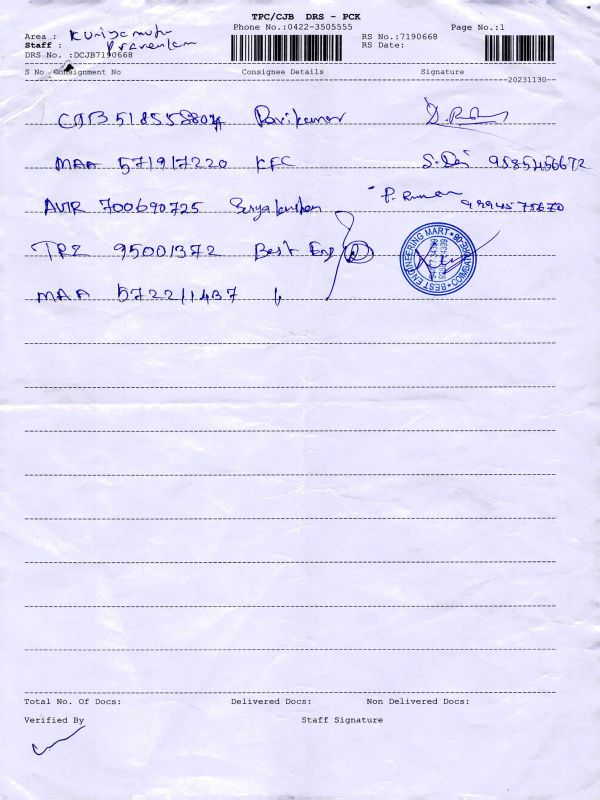 TPC/CJB DRS - PCK
Phone No.:0422-3505555 Page No.:1
Area : Kuniyamuthu RS No.:7190668
Staff : Praveenkam RS Date:
DRS No. :DCJB7190668
S No Consignment No Consignee Details Signature
20231130
CJB 518558804 Ravikumar
MAA 571917220 KFC S. Devi 9585456672
AMR 700690725 Suryakrishna P. Kumar 9994575670
TRZ 95001372 Best Eng 2
BEST ENGINEERING MART COIMBATORE-08
MAA 572211437 "
Total No. Of Docs: Delivered Docs: Non Delivered Docs:
Verified By Staff Signature